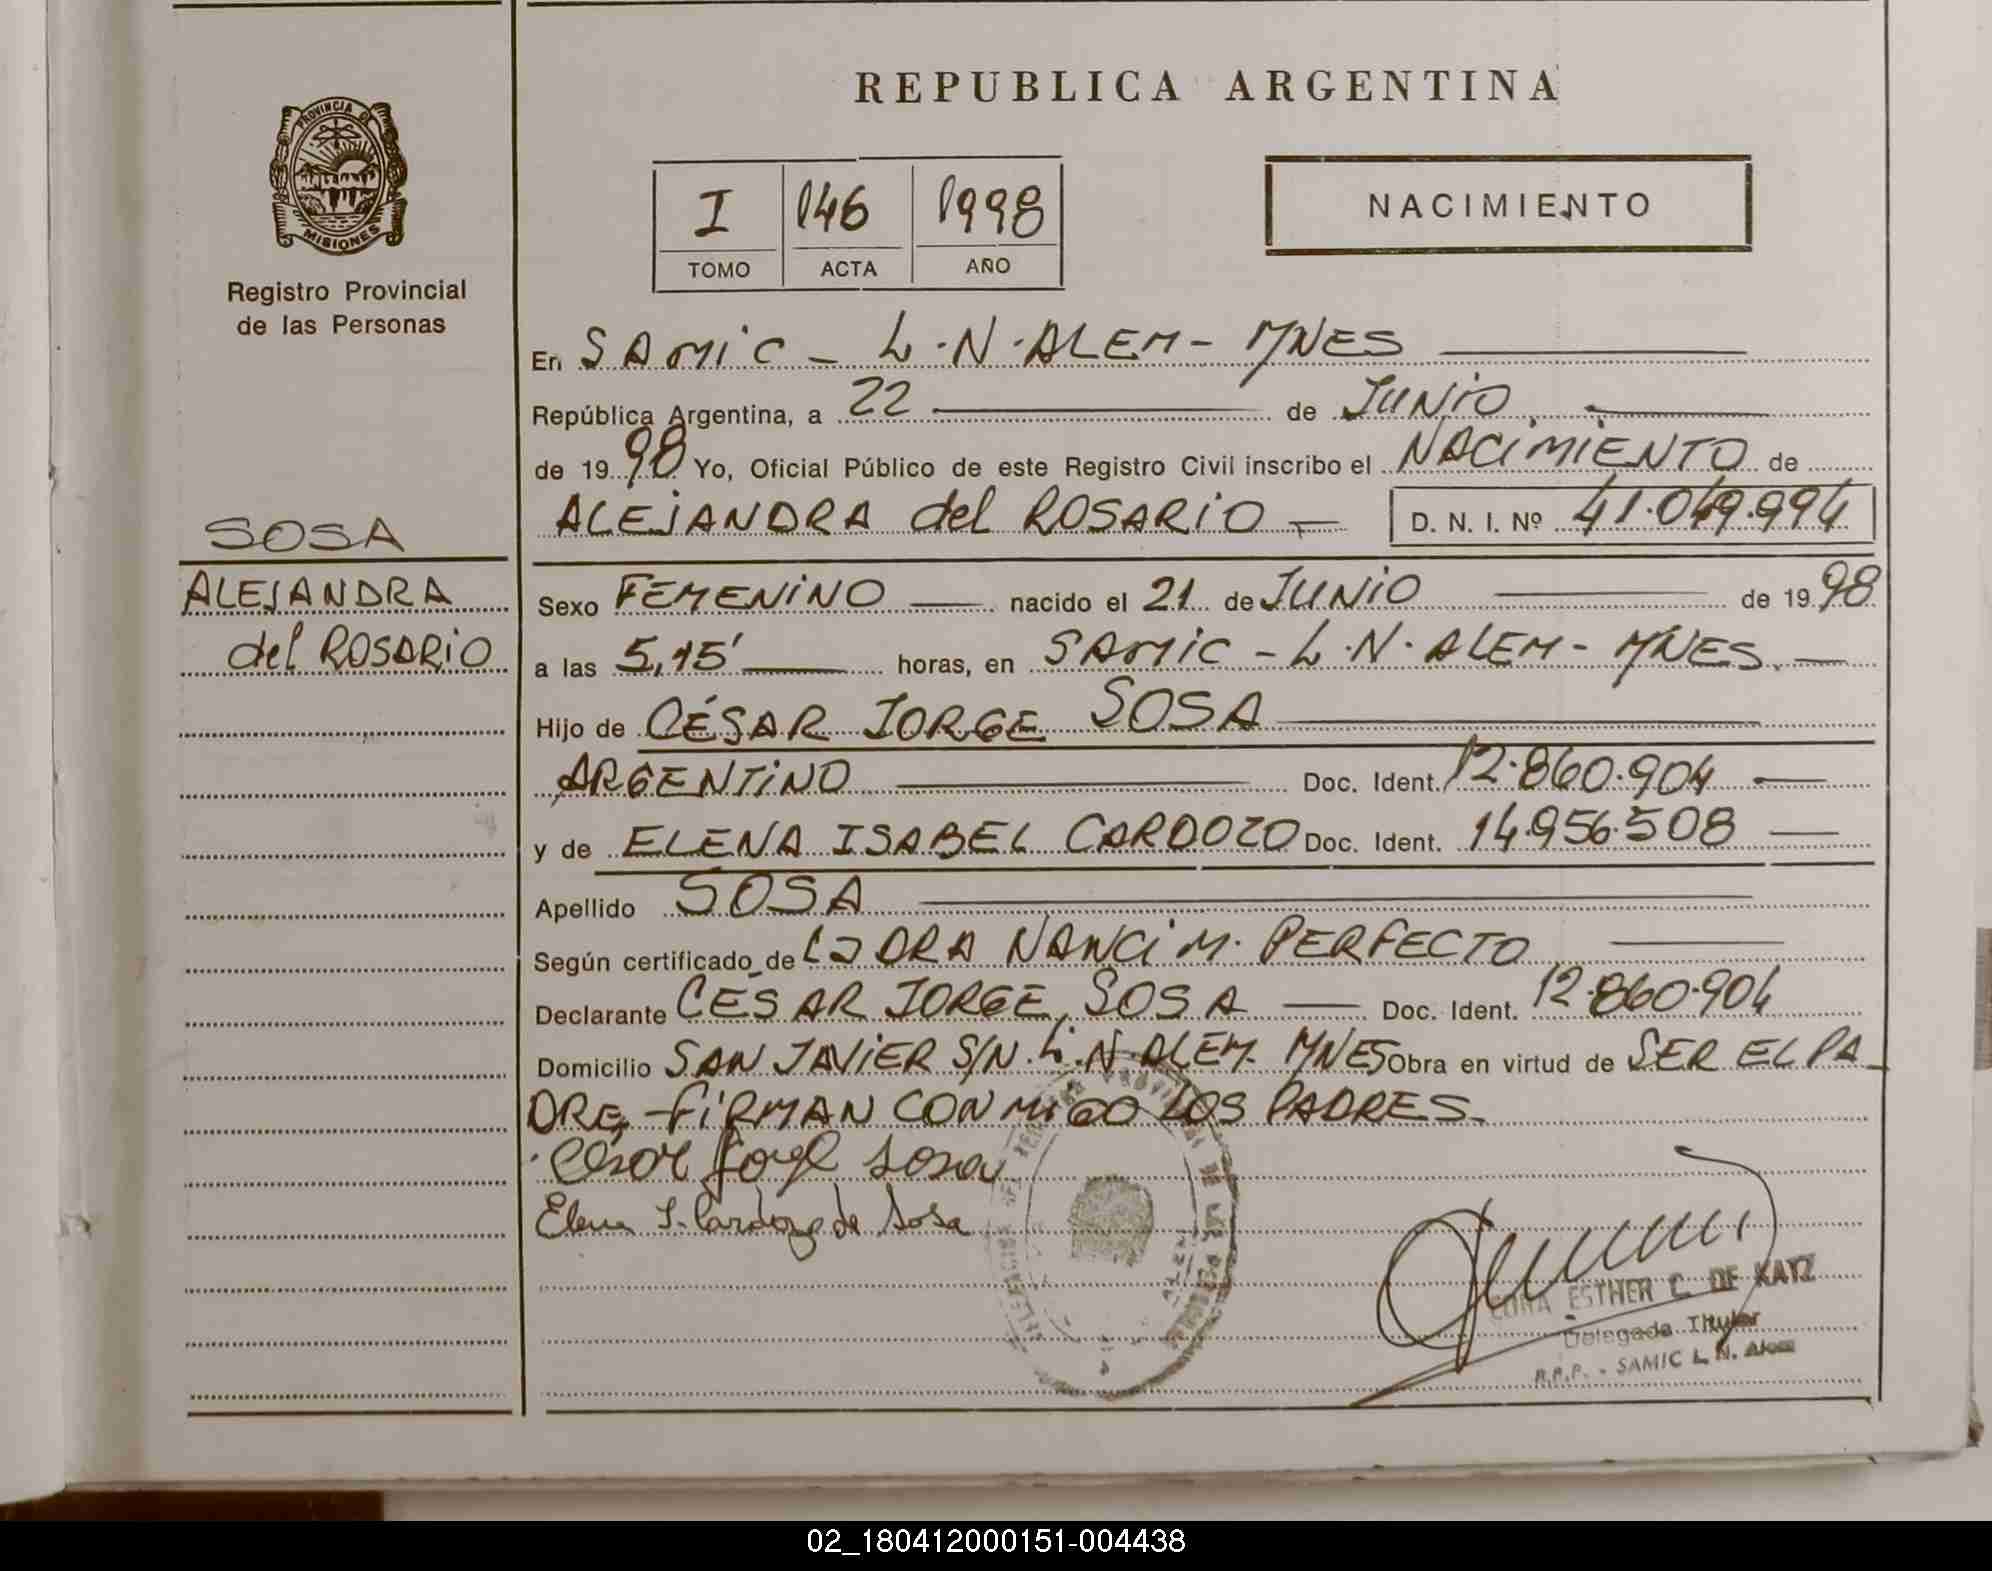 REPUBLICA ARGENTINA
PROVINCIA DE
MISIONES
Registro Provincial
de las Personas
I 146 1998
TOMO ACTA AÑO
NACIMIENTO
En SAMIC - L.N.ALEM - MNES
República Argentina, a 22 de JUNIO
de 1998 Yo, Oficial Público de este Registro Civil inscribo el NACIMIENTO de
ALEJANDRA del ROSARIO - D. N. I. Nº 41.049.994
SOSA
ALEJANDRA
del ROSARIO
Sexo FEMENINO nacido el 21 de JUNIO de 1998
a las 5,15' horas, en SAMIC - L.N.ALEM - MNES.
Hijo de CÉSAR JORGE SOSA
ARGENTINO Doc. Ident. 12.860.904
y de ELENA ISABEL CARDOZO Doc. Ident. 14.956.508
Apellido SOSA
Según certificado de DRA NANCI M. PERFECTO
Declarante CESAR JORGE SOSA Doc. Ident. 12.860.904
Domicilio SAN JAVIER S/N. L.N.ALEM. MNES Obra en virtud de SER EL PA-
DRE, - FIRMAN CONMIGO LOS PADRES.
César Jorge Sosa
Elena I. Cardozo de Sosa
ESTHER C. DE KATZ
Delegada Titular
R.P.P. - SAMIC L. N. Alem
02_180412000151-004438